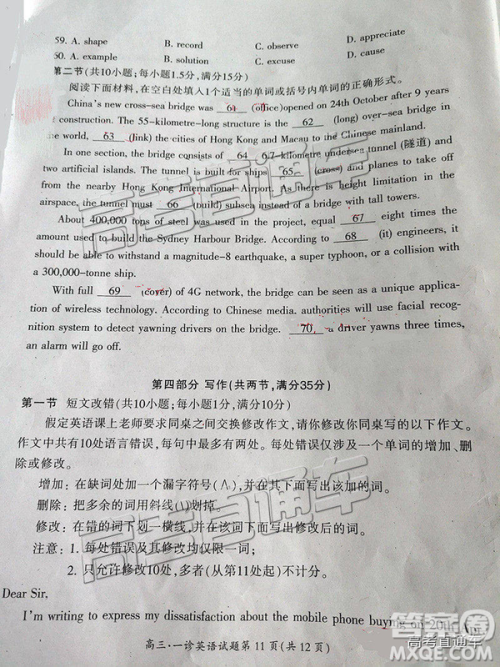 59. A. shape B. record C. observe D. appreciate
60. A. example B. solution C. excuse D. cause
第二节(共10小题;每小题1.5分,满分15分)
阅读下面材料,在空白处填入1个适当的单词或括号内单词的正确形式。
China's new cross-sea bridge was 61 (office)opened on 24th October after 9 years
construction. The 55-kilometre-long structure is the 62 (long) over-sea bridge in
the world, 63 (link) the cities of Hong Kong and Macau to the Chinese mainland.
In one section, the bridge consists of 64 6.7-kilometre undersea tunnel (隧道) and
two artificial islands. The tunnel is built for ships 65 (cross) and planes to take off
from the nearby Hong Kong International Airport. As there is height limitation in the
airspace, the tunnel must 66 (build) subsea instead of a bridge with tall towers.
About 400,000 tons of steel was used in the project, equal 67 eight times the
amount used to build the Sydney Harbour Bridge. According to 68 (it) engineers, it
should be able to withstand a magnitude-8 earthquake, a super typhoon, or a collision with
a 300,000-tonne ship.
With full 69 (cover) of 4G network, the bridge can be seen as a unique applica-
tion of wireless technology. According to Chinese media, authorities will use facial recog-
nition systems to detect yawning drivers on the bridge. 70 a driver yawns three times,
an alarm will go off.
第四部分 写作(共两节,满分35分)
第一节 短文改错(共10小题;每小题1分,满分10分)
假定英语课上老师要求同桌之间交换修改作文,请你修改你同桌写的以下作文。
作文中共有10处语言错误,每句中最多有两处。每处错误仅涉及一个单词的增加、删
除或修改。
增加:在缺词处加一个漏字符号(∧),并在其下面写出该加的词。
删除:把多余的词用斜线(\)划掉。
修改:在错的词下划一横线,并在该词下面写出修改后的词。
注意:1. 每处错误及其修改均仅限一词;
2. 只允许修改10处,多者(从第11处起)不计分。
Dear Sir,
I'm writing to express my dissatisfaction about the mobile phone buying on
高三·一诊英语试题第11页(共12页)
高考直通车
高考直通车
高考直通车